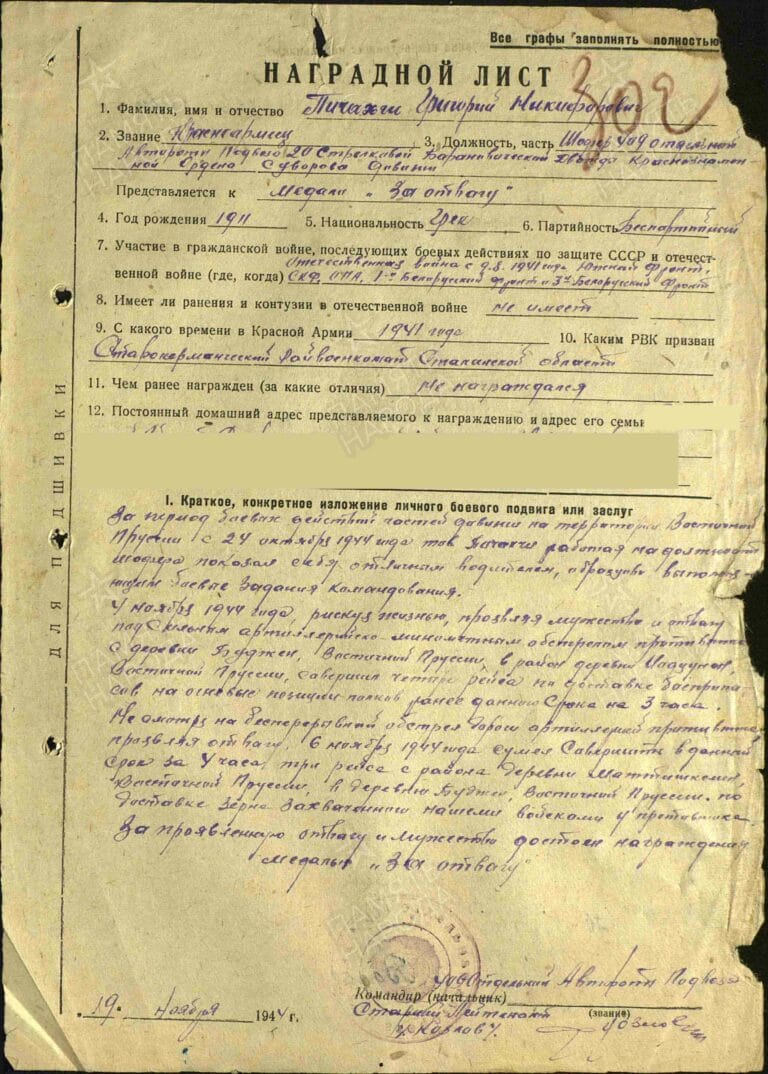 Все графы заполнять полностью
НАГРАДНОЙ ЛИСТ
302
1. Фамилия, имя и отчество Пичахчи Григорий Никифорович
2. Звание Красноармеец 3. Должность, часть Шофер 409 отдельной
Автороты Подвоза 20 Стрелковой Барановической дважды Краснознамен-
ной Ордена Суворова Дивизии
Представляется к Медали „За отвагу"
4. Год рождения 1911 5. Национальность Грек 6. Партийность Беспартийный
7. Участие в гражданской войне, последующих боевых действиях по защите СССР и отечест-
Отечественная война с 1941 года Южный Фронт,
венной войне (где, когда) СКФ, ОПА, 1й Белорусский фронт и 3й Белорусский Фронт
8. Имеет ли ранения и контузии в отечественной войне не имеет
9. С какого времени в Красной Армии 1941 года 10. Каким РВК призван
Старокерменчический Райвоенкомат Сталинской области
11. Чем ранее награжден (за какие отличия) Не награждался
12. Постоянный домашний адрес представляемого к награждению и адрес его семьи
ДЛЯ ПОДШИВКИ
I. Краткое, конкретное изложение личного боевого подвига или заслуг
За период боевых действий частей дивизии на территории Восточной
Пруссии с 24 октября 1944 года тов. Пичахчи работая на должности
шофера показал себя отличным водителем, образцово выполня-
ющим боевые задания командования.
4 ноября 1944 года, рискуя жизнью, проявляя мужество и отвагу
под сильным артиллерийско-минометным обстрелом противника
с деревни Буджен, Восточной Пруссии, в район деревни
Восточной Пруссии, совершил четыре рейса по доставке боеприпа-
сов на огневые позиции полков ранее данного срока на 3 часа.
Не смотря на беспрерывный обстрел дороги артиллерией противника,
проявляя отвагу, 6 ноября 1944 года сумел совершить в данный
срок за 4 часа, три рейса с района деревни Маттишкемен,
Восточной Пруссии, в деревню Буджен, Восточной Пруссии по
доставке зерна захваченного нашими войсками у противника.
За проявленную отвагу и мужество достоин награждения
медалью „За отвагу"
409 Отдельной Автороты Подвоза
Командир (начальник)
(звание)
Старший Лейтенант
„19" Ноября 1944 г.